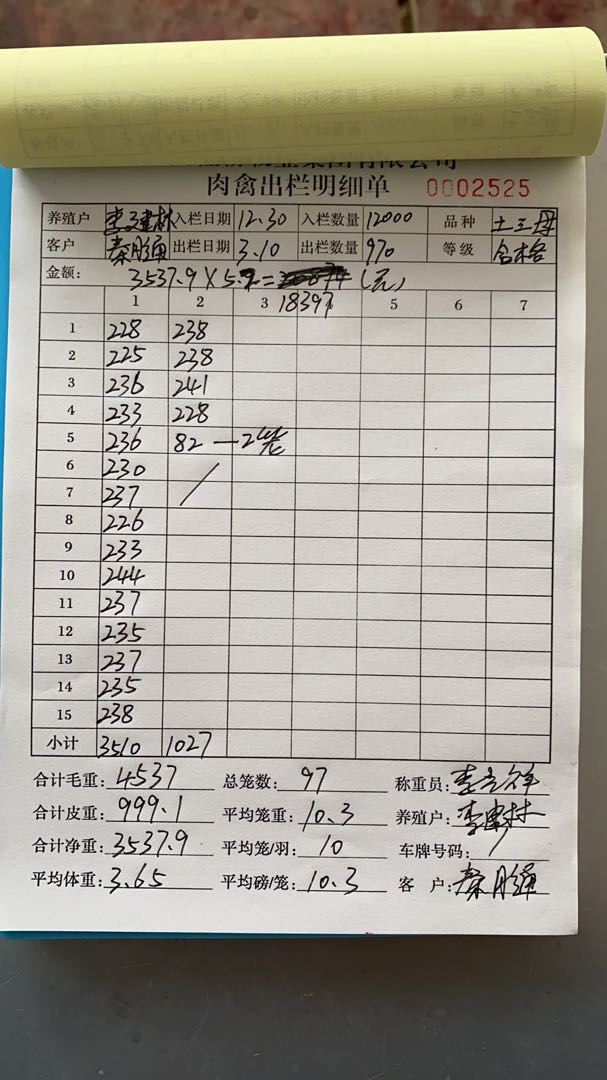 肉禽出栏明细单 0002525
养殖户 李建林 入栏日期 12.30 入栏数量 12000 品种 土三母
客户 秦鹏通 出栏日期 3.10 出栏数量 970 等级 合格
金额: 3537.9×5.2= (元)
18397
1 2 3 4 5 6 7
1 228 238
2 225 238
3 236 241
4 233 228
5 236 82 —2笼
6 230
7 237
8 226
9 233
10 244
11 237
12 235
13 237
14 235
15 238
小计 3510 1027
合计毛重: 4537 总笼数: 97 称重员:
合计皮重: 999.1 平均笼重: 10.3 养殖户: 李建林
合计净重: 3537.9 平均笼/羽: 10 车牌号码: /
平均体重: 3.65 平均磅/笼: 10.3 客 户: 秦鹏通